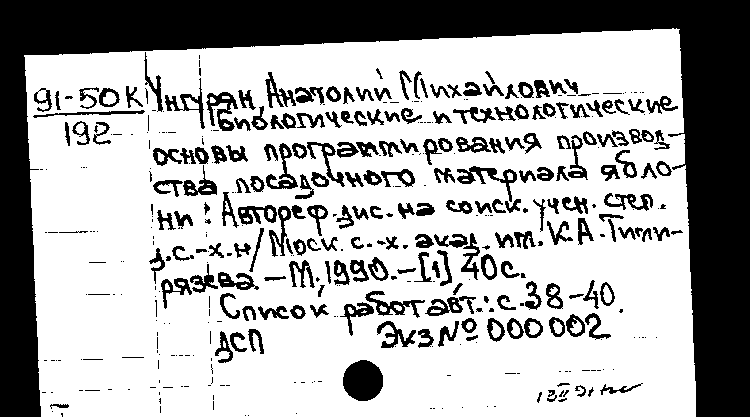 91-50К Унгурян, Анатолий Михайлович
192
Биологические и технологические
основы программирования производ-
ства посадочного материала ябло-
ни : Автореф. дис. на соиск. учен. степ.
д.с.-х.н / Моск. с.-х. акад. им. К.А. Тими-
рязева. – М., 1990. – [1] 40 с.
Список работ авт.: с. 38-40.
ДСП Экз № 000002